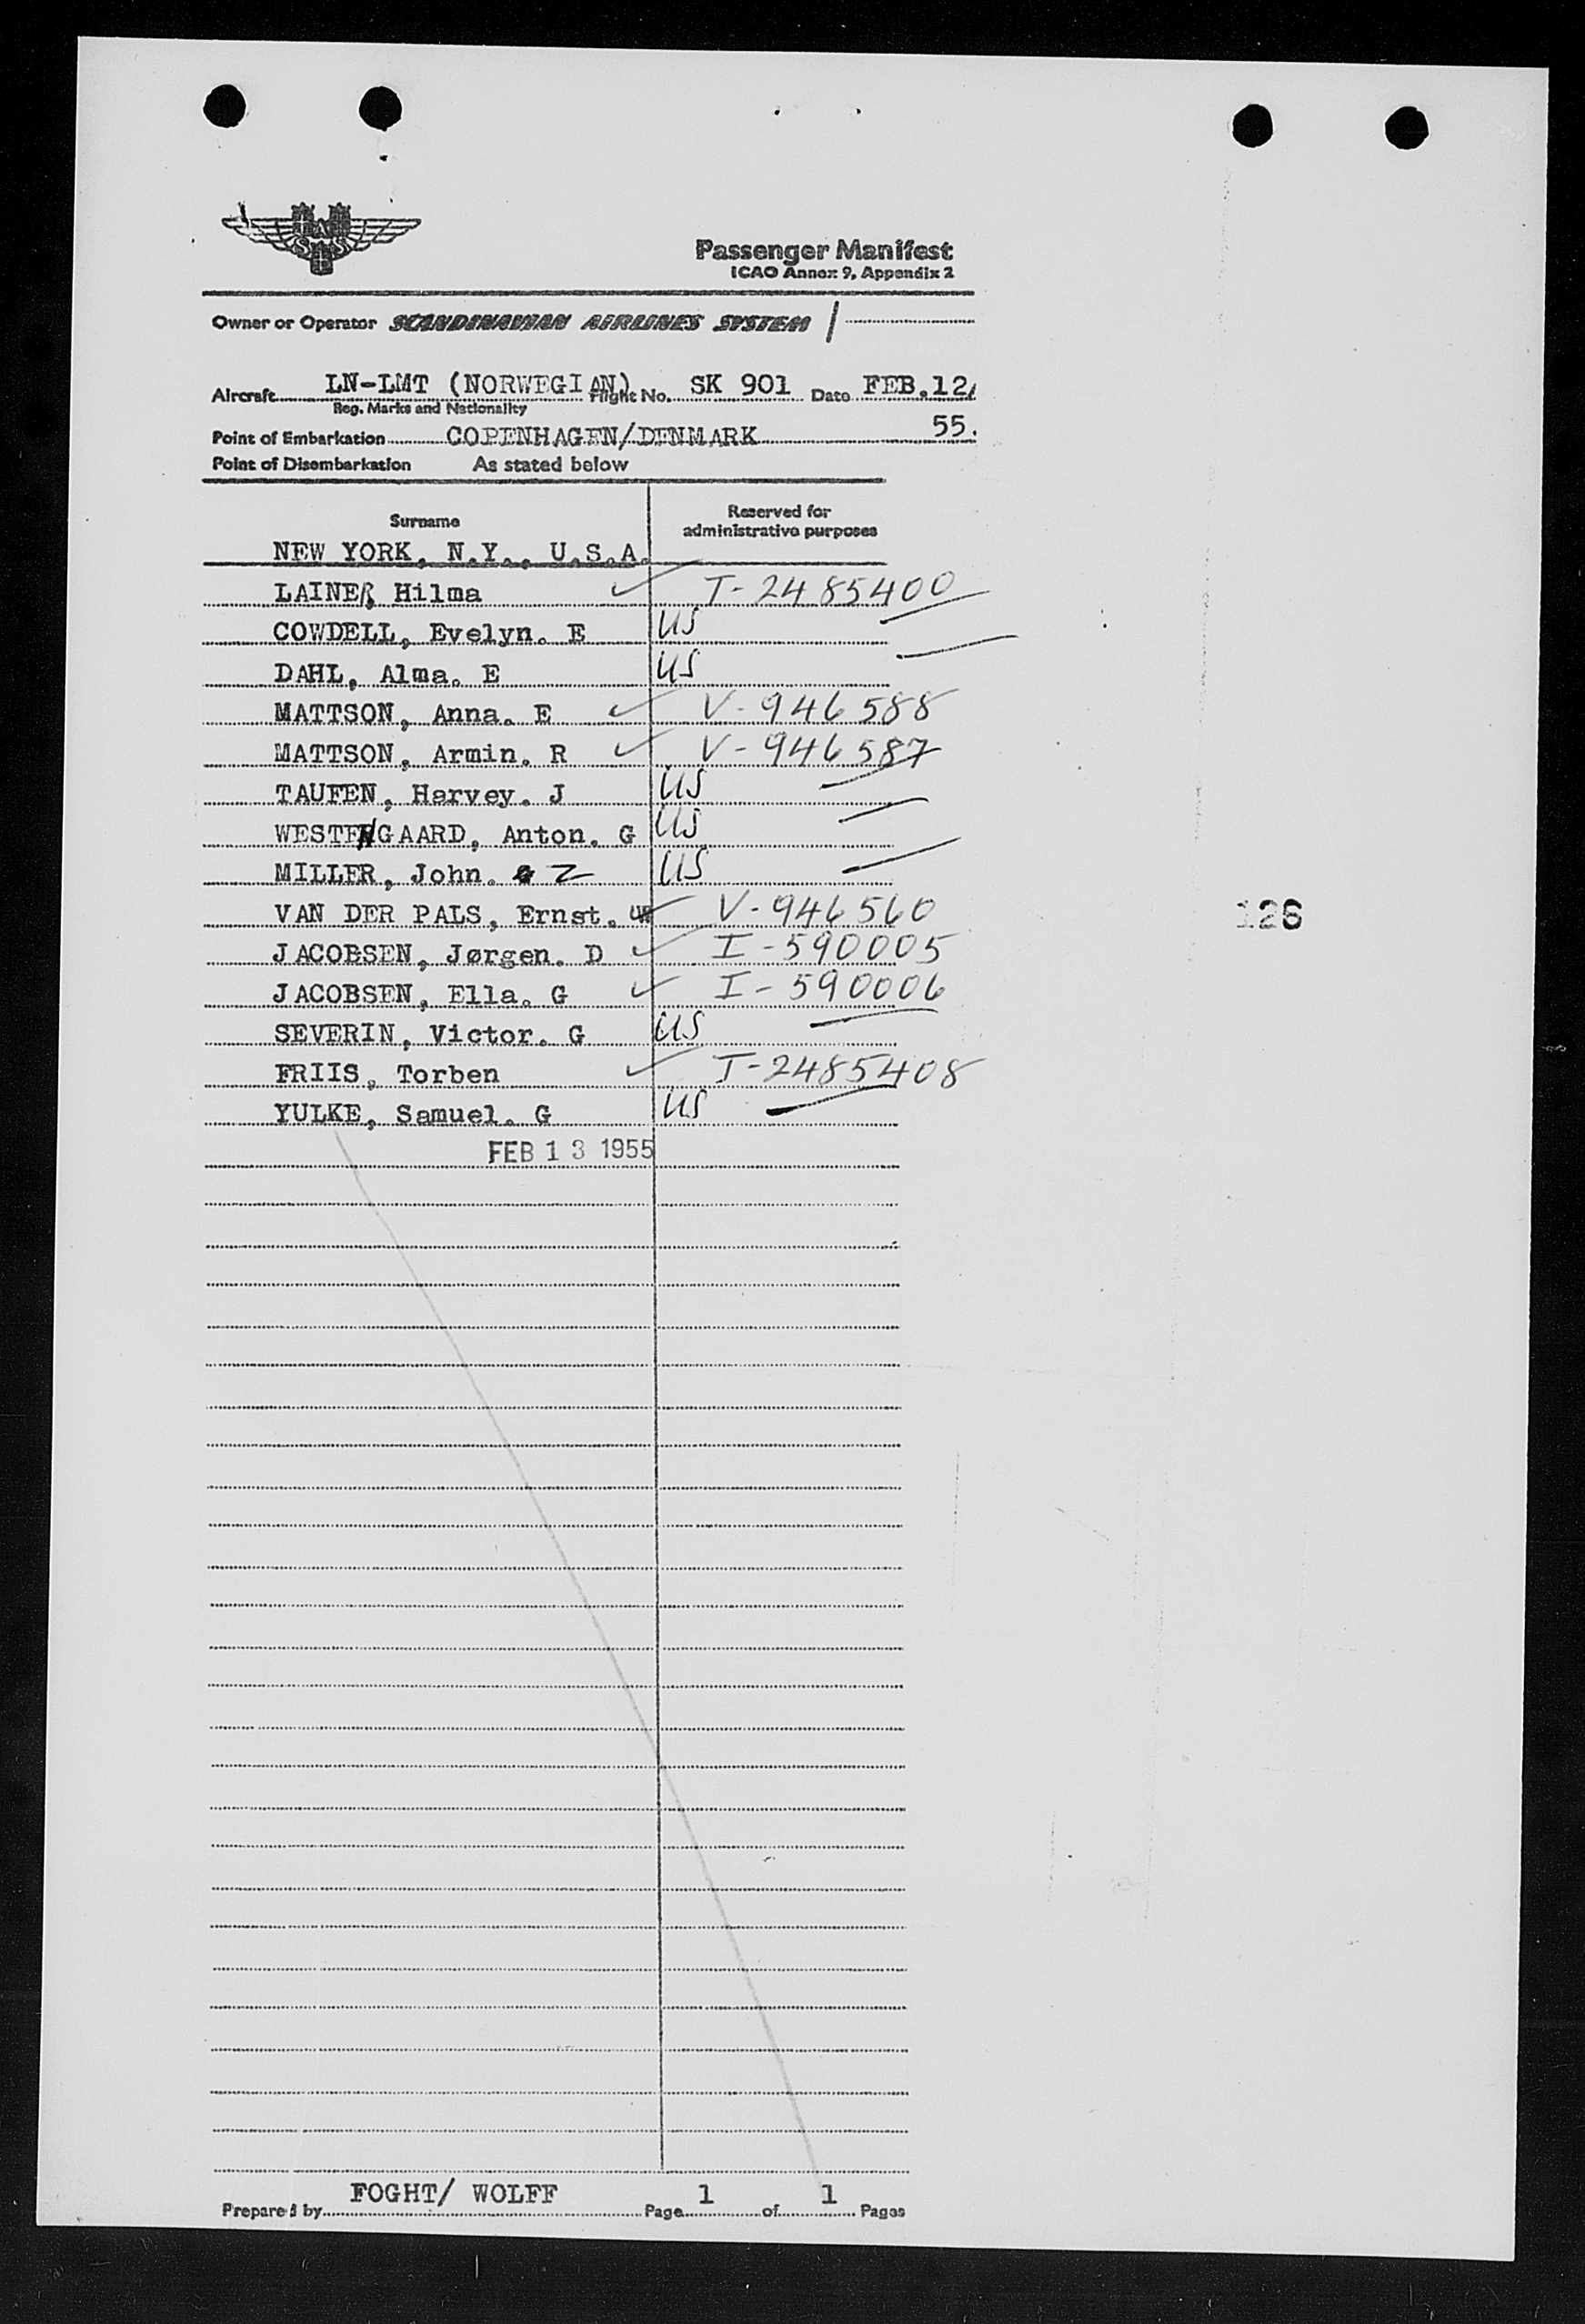 SAS
Passenger Manifest
ICAO Annex 9, Appendix 2
Owner or Operator SCANDINAVIAN AIRLINES SYSTEM /
Aircraft LN-LMT (NORWEGIAN) Flight No. SK 901 Date FEB.12/
Reg. Marks and Nationality
55.
Point of Embarkation COPENHAGEN/DENMARK
Point of Disembarkation As stated below
Surname Reserved for administrative purposes
NEW YORK, N.Y., U.S.A.
LAINER, Hilma ✓ T-2485400
COWDELL, Evelyn. E US
DAHL, Alma. E US
MATTSON, Anna. E ✓ V-946588
MATTSON, Armin. R ✓ V-946587
TAUFEN, Harvey. J US
WESTERGAARD, Anton. G US
MILLER, John. Z US
VAN DER PALS, Ernst. W V-946560
JACOBSEN, Jørgen. D ✓ I-590005
JACOBSEN, Ella. G ✓ I-590006
SEVERIN, Victor. G US
FRIIS, Torben ✓ T-2485408
YULKE, Samuel. G US
FEB 13 1955
126
Prepared by FOGHT/ WOLFF Page 1 of 1 Pages